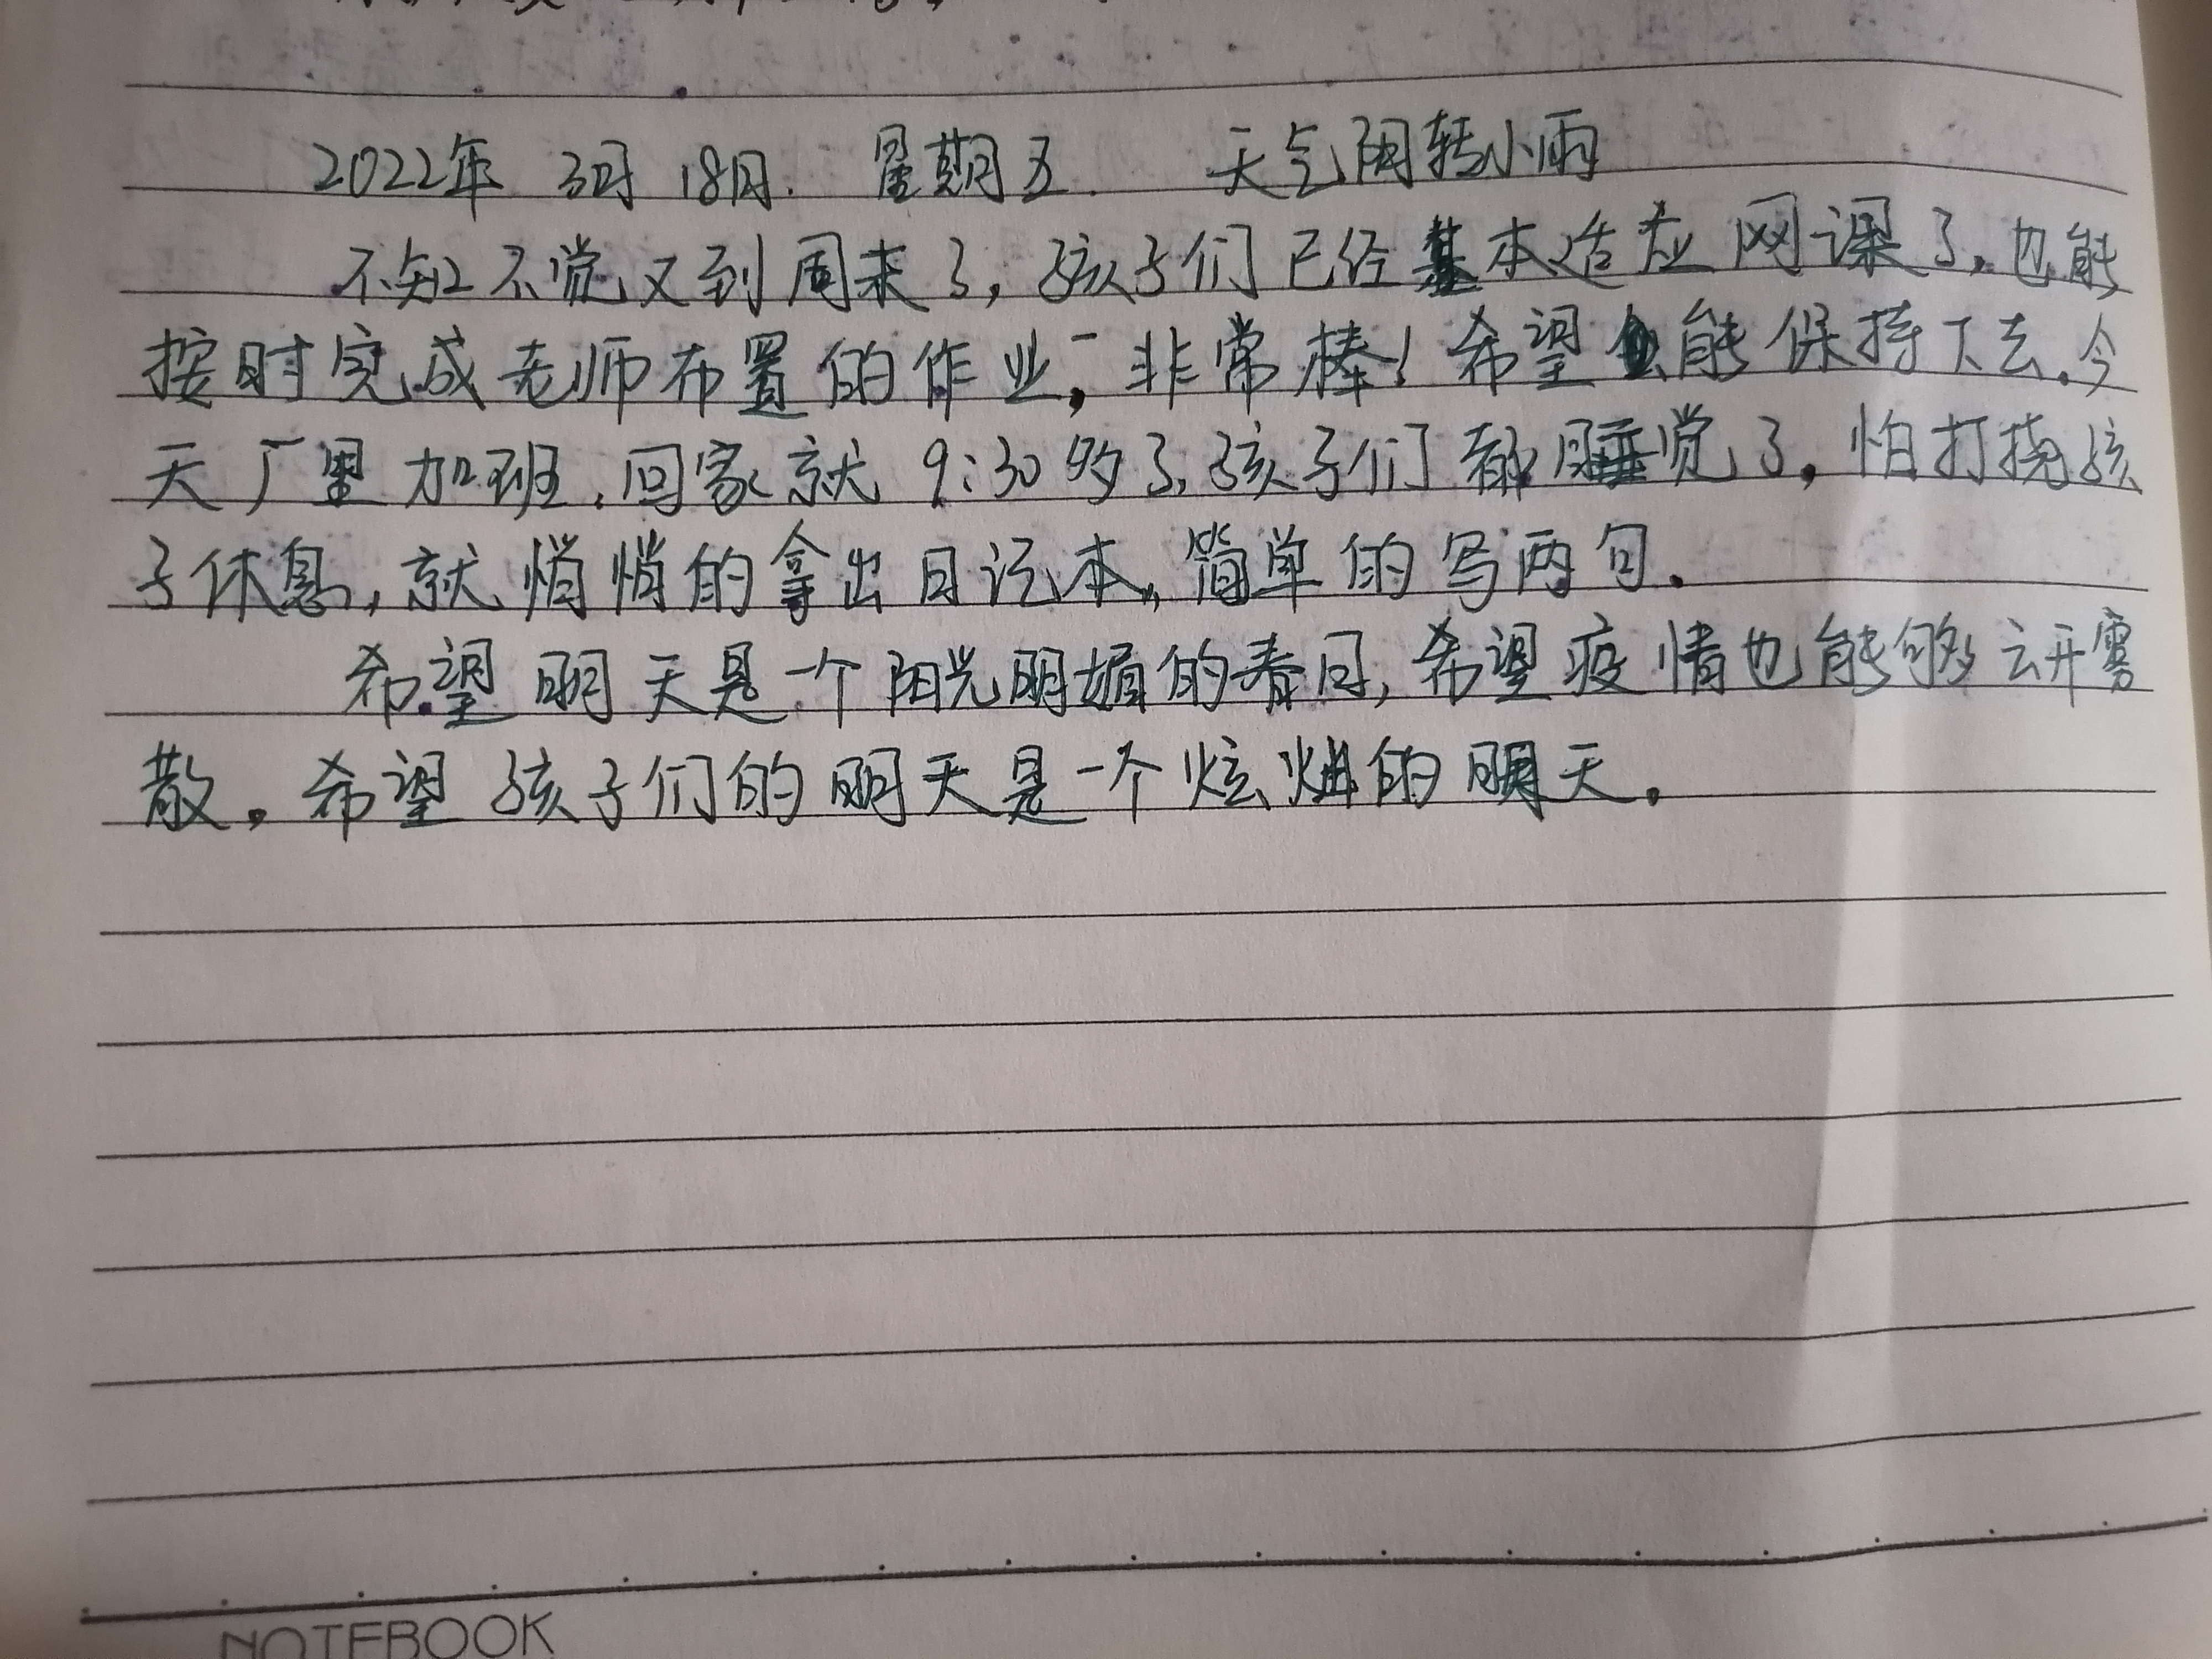 2022年 3月 18日. 星期五. 天气阴转小雨
不知不觉又到周末了,孩子们已经基本适应网课了,也能
按时完成老师布置的作业,非常棒!希望能保持下去.今
天厂里加班,回家就9:30多了,孩子们都睡觉了,怕打搅孩
子休息,就悄悄的拿出日记本,简单的写两句.
希望明天是一个阳光明媚的春日,希望疫情也能够云开雾
散。希望孩子们的明天是一个炫灿的明天。
NOTEBOOK